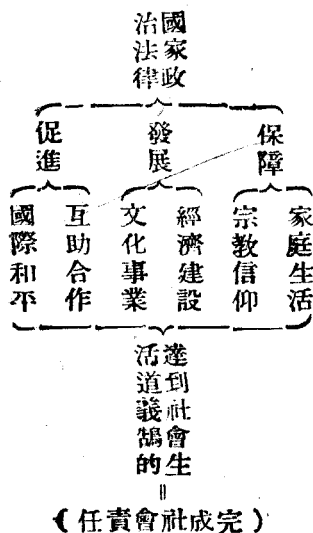 國家政
治法律
保障
發展
促進
家庭生活
宗教信仰
經濟建設
文化事業
互助合作
國際和平
達到社會生
活道義鵠的
=
(完成社會責任)